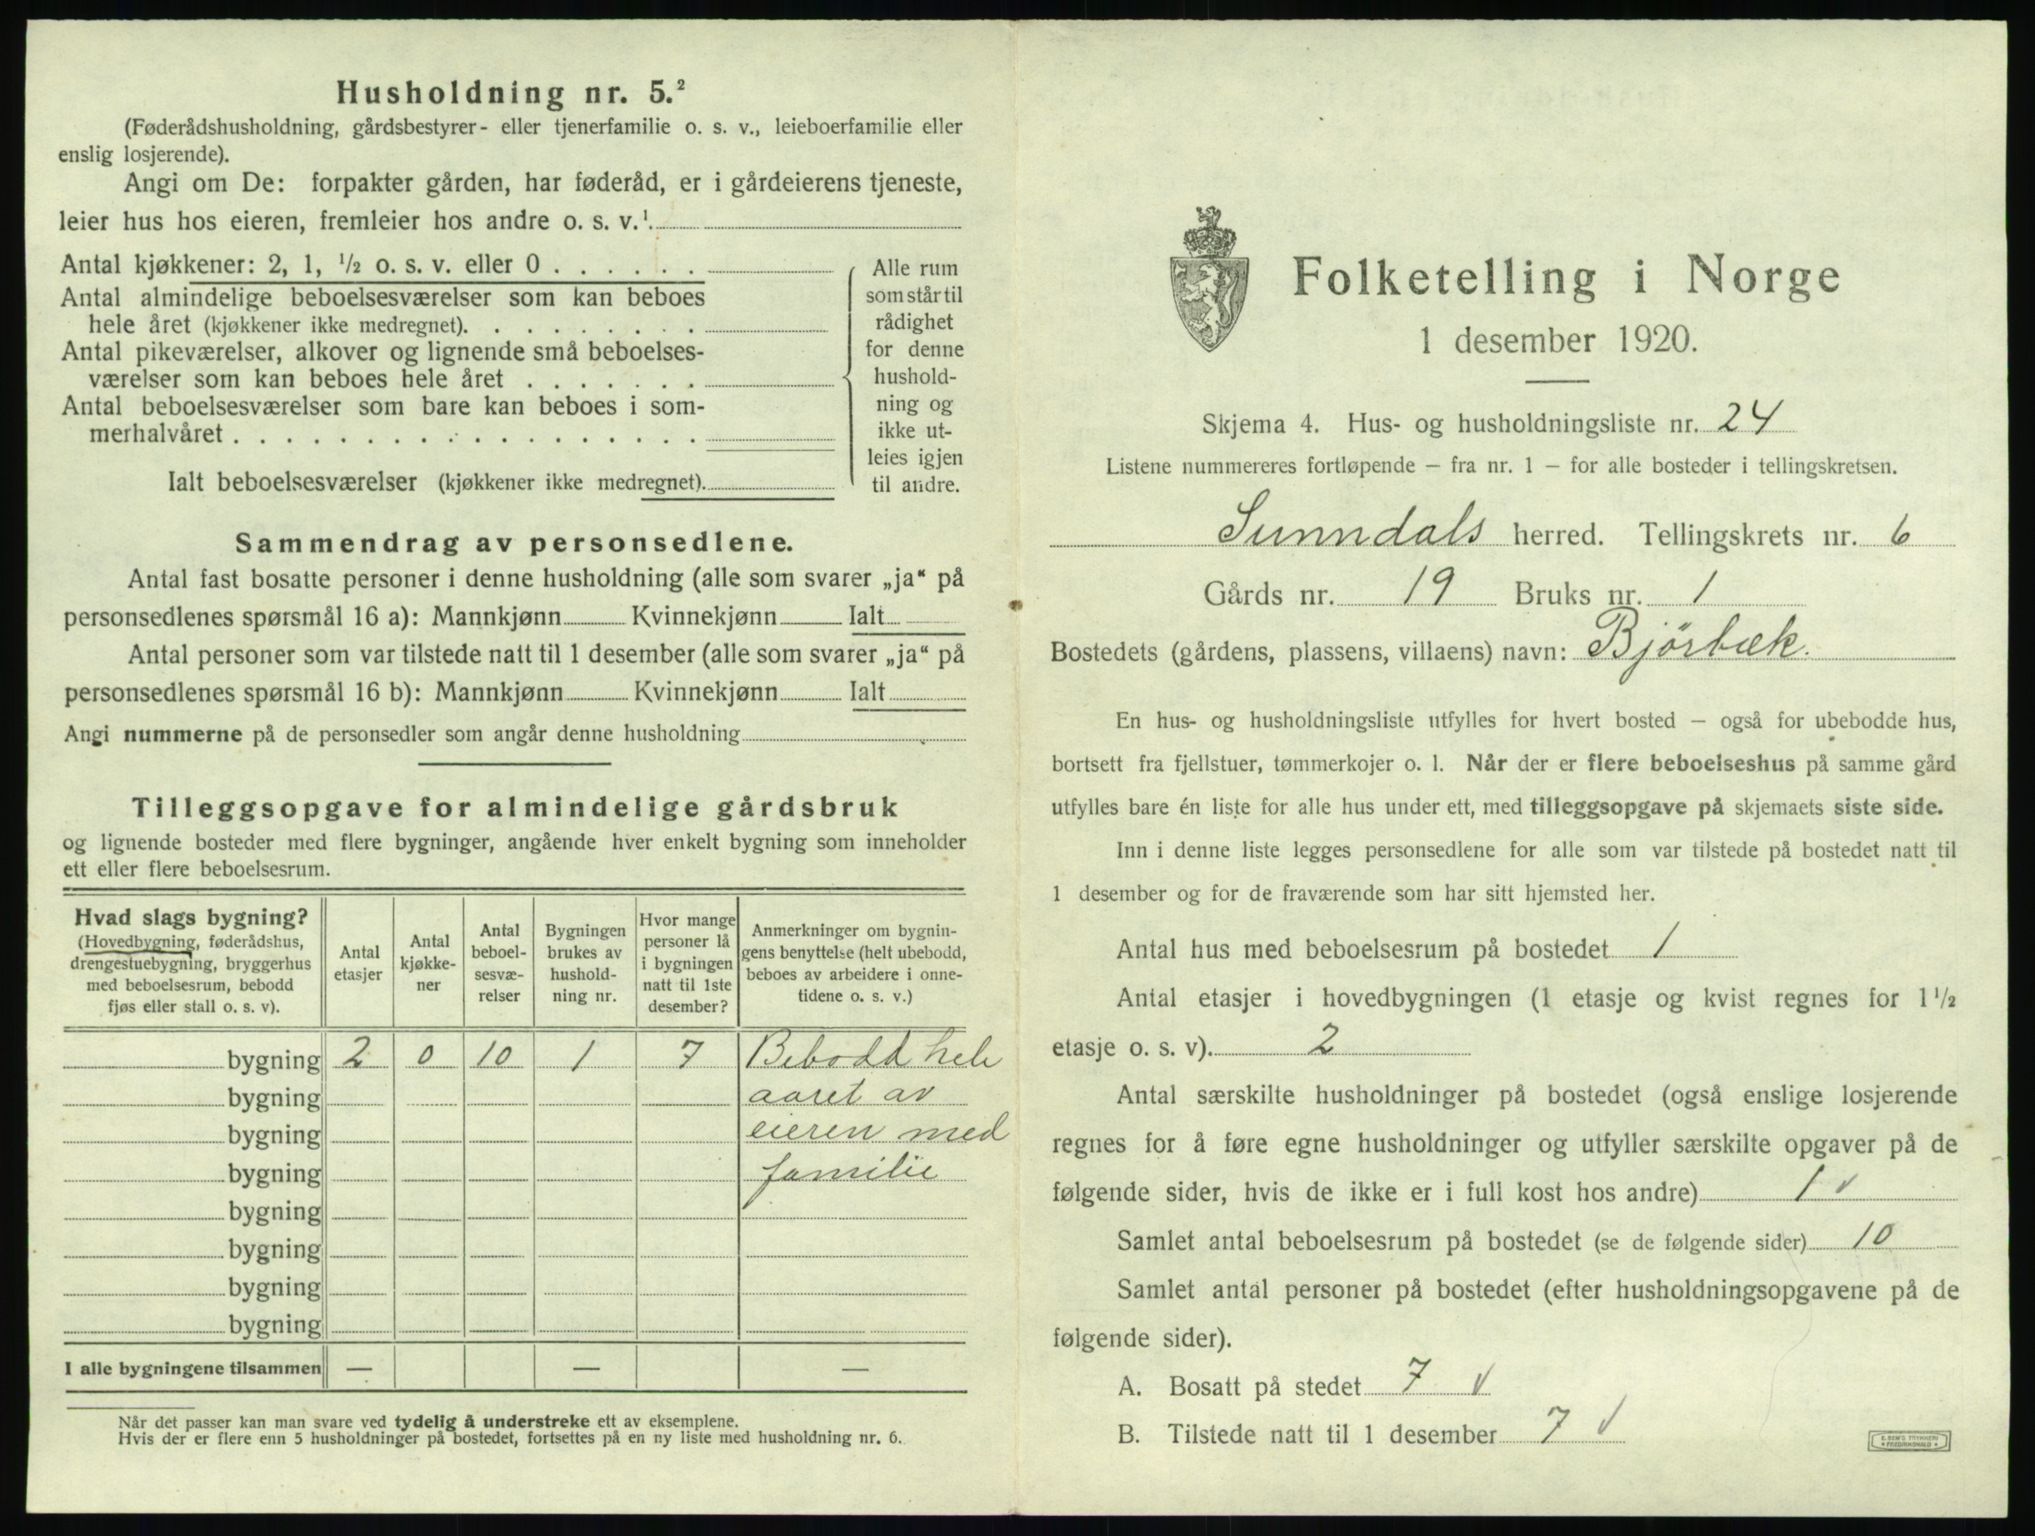 Husholdning nr. 5.²
(Føderådshusholdning, gårdsbestyrer- eller tjenerfamilie o. s. v., leieboerfamilie eller
enslig losjerende).
Angi om De: forpakter gården, har føderåd, er i gårdeierens tjeneste,
leier hus hos eieren, fremleier hos andre o. s. v.¹
Antal kjøkkener: 2, 1, ½ o. s. v. eller 0
Antal almindelige beboelsesværelser som kan beboes
hele året (kjøkkener ikke medregnet).
Antal pikeværelser, alkover og lignende små beboelses-
værelser som kan beboes hele året
Antal beboelsesværelser som bare kan beboes i som-
merhalvåret
Ialt beboelsesværelser (kjøkkener ikke medregnet).
Alle rum
som står til
rådighet
for denne
hushold-
ning og
ikke ut-
leies igjen
til andre.
Sammendrag av personsedlene.
Antal fast bosatte personer i denne husholdning (alle som svarer „ja“ på
personsedlenes spørsmål 16 a): Mannkjønn Kvinnekjønn Ialt
Antal personer som var tilstede natt til 1 desember (alle som svarer „ja“ på
personsedlenes spørsmål 16 b): Mannkjønn Kvinnekjønn Ialt
Angi nummerne på de personsedler som angår denne husholdning
Tilleggsopgave for almindelige gårdsbruk
og lignende bosteder med flere bygninger, angående hver enkelt bygning som inneholder
ett eller flere beboelsesrum.
Hvad slags bygning?
(Hovedbygning, føderådshus,
drengestuebygning, bryggerhus
med beboelsesrum, bebodd
fjøs eller stall o. s. v).
Antal
etasjer
Antal
kjøkke-
ner
Antal
beboel-
sesvæ-
relser
Bygningen
brukes av
hushold-
ning nr.
Hvor mange
personer lå
i bygningen
natt til 1ste
desember?
Anmerkninger om bygnin-
gens benyttelse (helt ubebodd,
beboes av arbeidere i onne-
tidene o. s. v.)
bygning 2 0 10 1 7 Bebodd hele
bygning aaret av
bygning eieren med
bygning familie
bygning
bygning
bygning
bygning
I alle bygningene tilsammen — — —
Når det passer kan man svare ved tydelig å understreke ett av eksemplene.
Hvis der er flere enn 5 husholdninger på bostedet, fortsettes på en ny liste med husholdning nr. 6.
Folketelling i Norge
1 desember 1920.
Skjema 4. Hus- og husholdningsliste nr. 24
Listene nummereres fortløpende – fra nr. 1 – for alle bosteder i tellingskretsen.
Sunndals herred. Tellingskrets nr. 6
Gårds nr. 19 Bruks nr. 1
Bostedets (gårdens, plassens, villaens) navn: Bjørbæk.
En hus- og husholdningsliste utfylles for hvert bosted – også for ubebodde hus,
bortsett fra fjellstuer, tømmerkojer o. l. Når der er flere beboelseshus på samme gård
utfylles bare én liste for alle hus under ett, med tilleggsopgave på skjemaets siste side.
Inn i denne liste legges personsedlene for alle som var tilstede på bostedet natt til
1 desember og for de fraværende som har sitt hjemsted her.
Antal hus med beboelsesrum på bostedet 1
Antal etasjer i hovedbygningen (1 etasje og kvist regnes for 1½
etasje o. s. v). 2
Antal særskilte husholdninger på bostedet (også enslige losjerende
regnes for å føre egne husholdninger og utfyller særskilte opgaver på de
følgende sider, hvis de ikke er i full kost hos andre) 1 v
Samlet antal beboelsesrum på bostedet (se de følgende sider) 10
Samlet antal personer på bostedet (efter husholdningsopgavene på de
følgende sider).
A. Bosatt på stedet 7 v
B. Tilstede natt til 1 desember 7 v